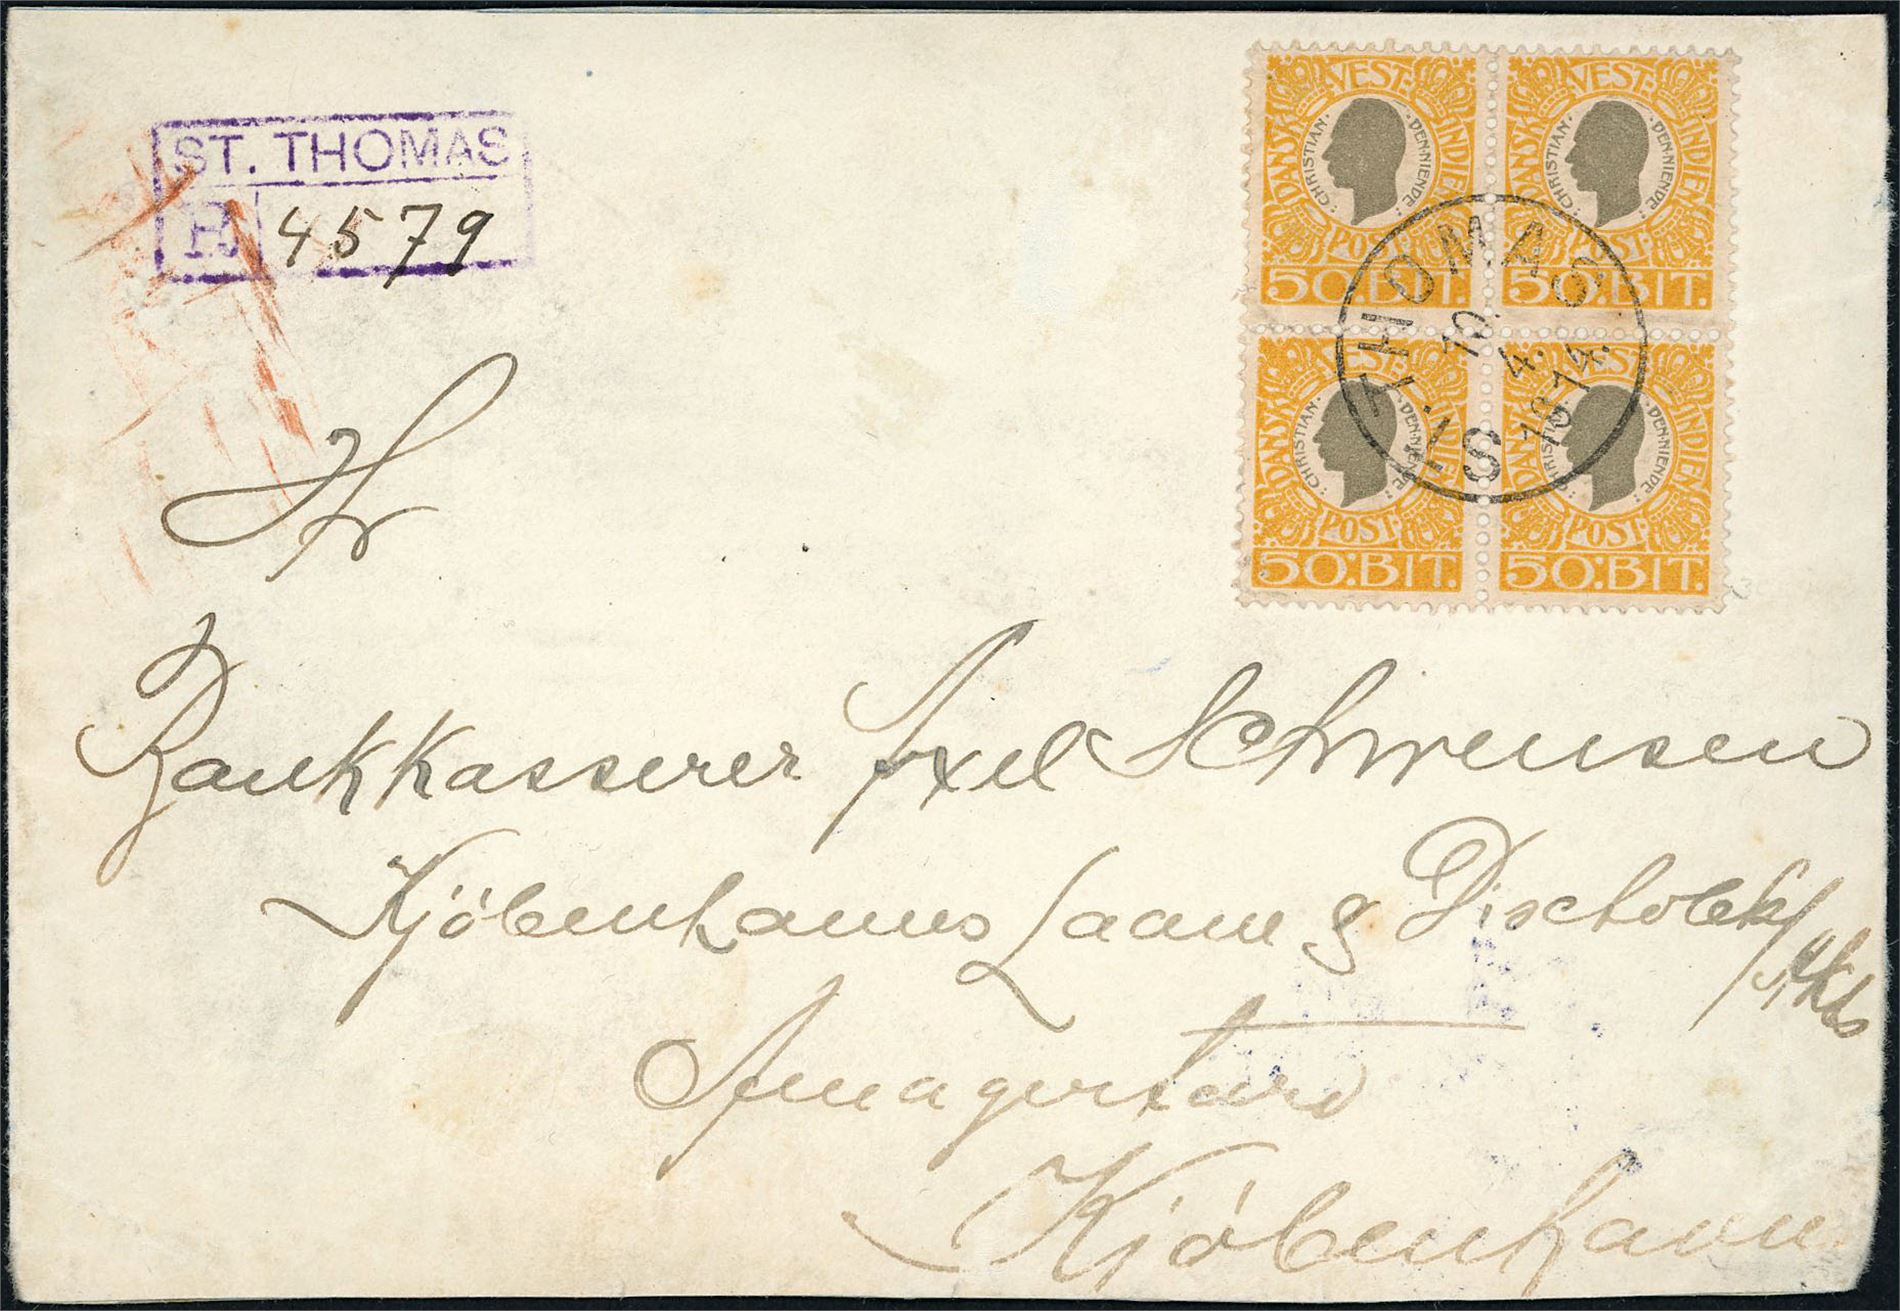 ST. THOMAS
R 4579
DANSK VEST: INDIEN
CHRISTIAN · DEN · NIENDE :
POST:
50:BIT.
DANSK VEST: INDIEN
CHRISTIAN · DEN · NIENDE :
POST:
50:BIT.
DANSK VEST: INDIEN
CHRISTIAN · DEN · NIENDE :
POST:
50:BIT.
DANSK VEST: INDIEN
CHRISTIAN · DEN · NIENDE :
POST:
50:BIT.
ST. THOMAS
10. 4. 14.
Hr
Bankkasserer Axel Schwensen
Kjöbenhavns Laane & Discto
Amagertorv
Kjöbenhavn